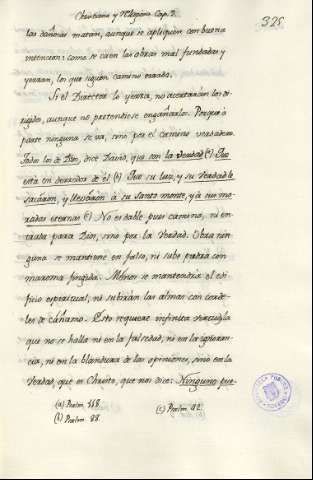 Christiano y Religioso Cap. 2.
325
las cañerias matan, aunque se apliquen con buena
intencion: como se caen las obras mal fundadas y
yerran, los que siguen camino errado.
Si el Director la yerra, no acertarán los di-
rigidos, aunque no pretendiese engañarlos. Porque à
parte ninguna se va, sino por el camino verdadero.
Todos los de Dios, dice David, que son la verdad (a) Que
està en derredor de él (b) Que su luz, y su verdad le
sacarón, y llevarón à su santo monte, y à sus mo-
radas eternas (c) No es dable pues camino, ni en-
trada para Dios, sino por la verdad. Obra nin-
guna se mantiene en falso, ni sube piedra con
maroma fingida. Menos se mantendria el edi-
ficio espiritual, ni subirán las almas con corde-
les de cáñamo. Esto requiere infinita
que no se halla ni en la falsedad, ni en la ignoran-
cia, ni en la blandura de las opiniones, sino en la
verdad, que es Christo, que nos dice: Ninguno pue-
(a) Psalm. 118.
(b) Psalm. 88.
(c) Psalm. 42.